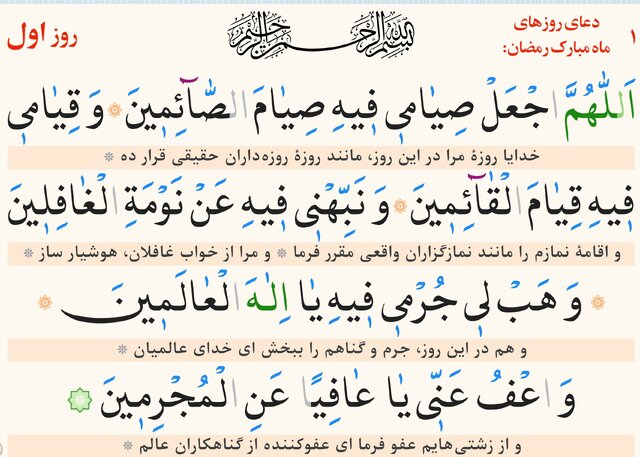 ۱ دعای روزهای ماه مبارک رمضان:
بِسْمِ اللّٰهِ الرَّحْمٰنِ الرَّحِیمِ
روز اول
اَللّٰهُمَّ اجْعَلْ صِیٰامی فیهِ صِیٰامَ الصّٰٓائِمینَ وَ قِیٰامی
خدایا روزهٔ مرا در این روز، مانند روزهٔ روزه‌داران حقیقی قرار ده
فیهِ قِیٰامَ الْقٰٓائِمینَ وَ نَبِّهْنی فیهِ عَنْ نَوْمَةِ الْغٰافِلینَ
و اقامهٔ نمازم را مانند نمازگزاران واقعی مقرر فرما و مرا از خواب غافلان، هوشیار ساز
وَ هَبْ لی جُرْمی فیهِ یٰا اِلٰهَ الْعٰالَمینَ
و هم در این روز، جرم و گناهم را ببخش ای خدای عالمیان
وَ اعْفُ عَنّی یٰا عٰافِیًا عَنِ الْمُجْرِمینَ
و از زشتی‌هایم عفو فرما ای عفوکننده از گناهکاران عالم